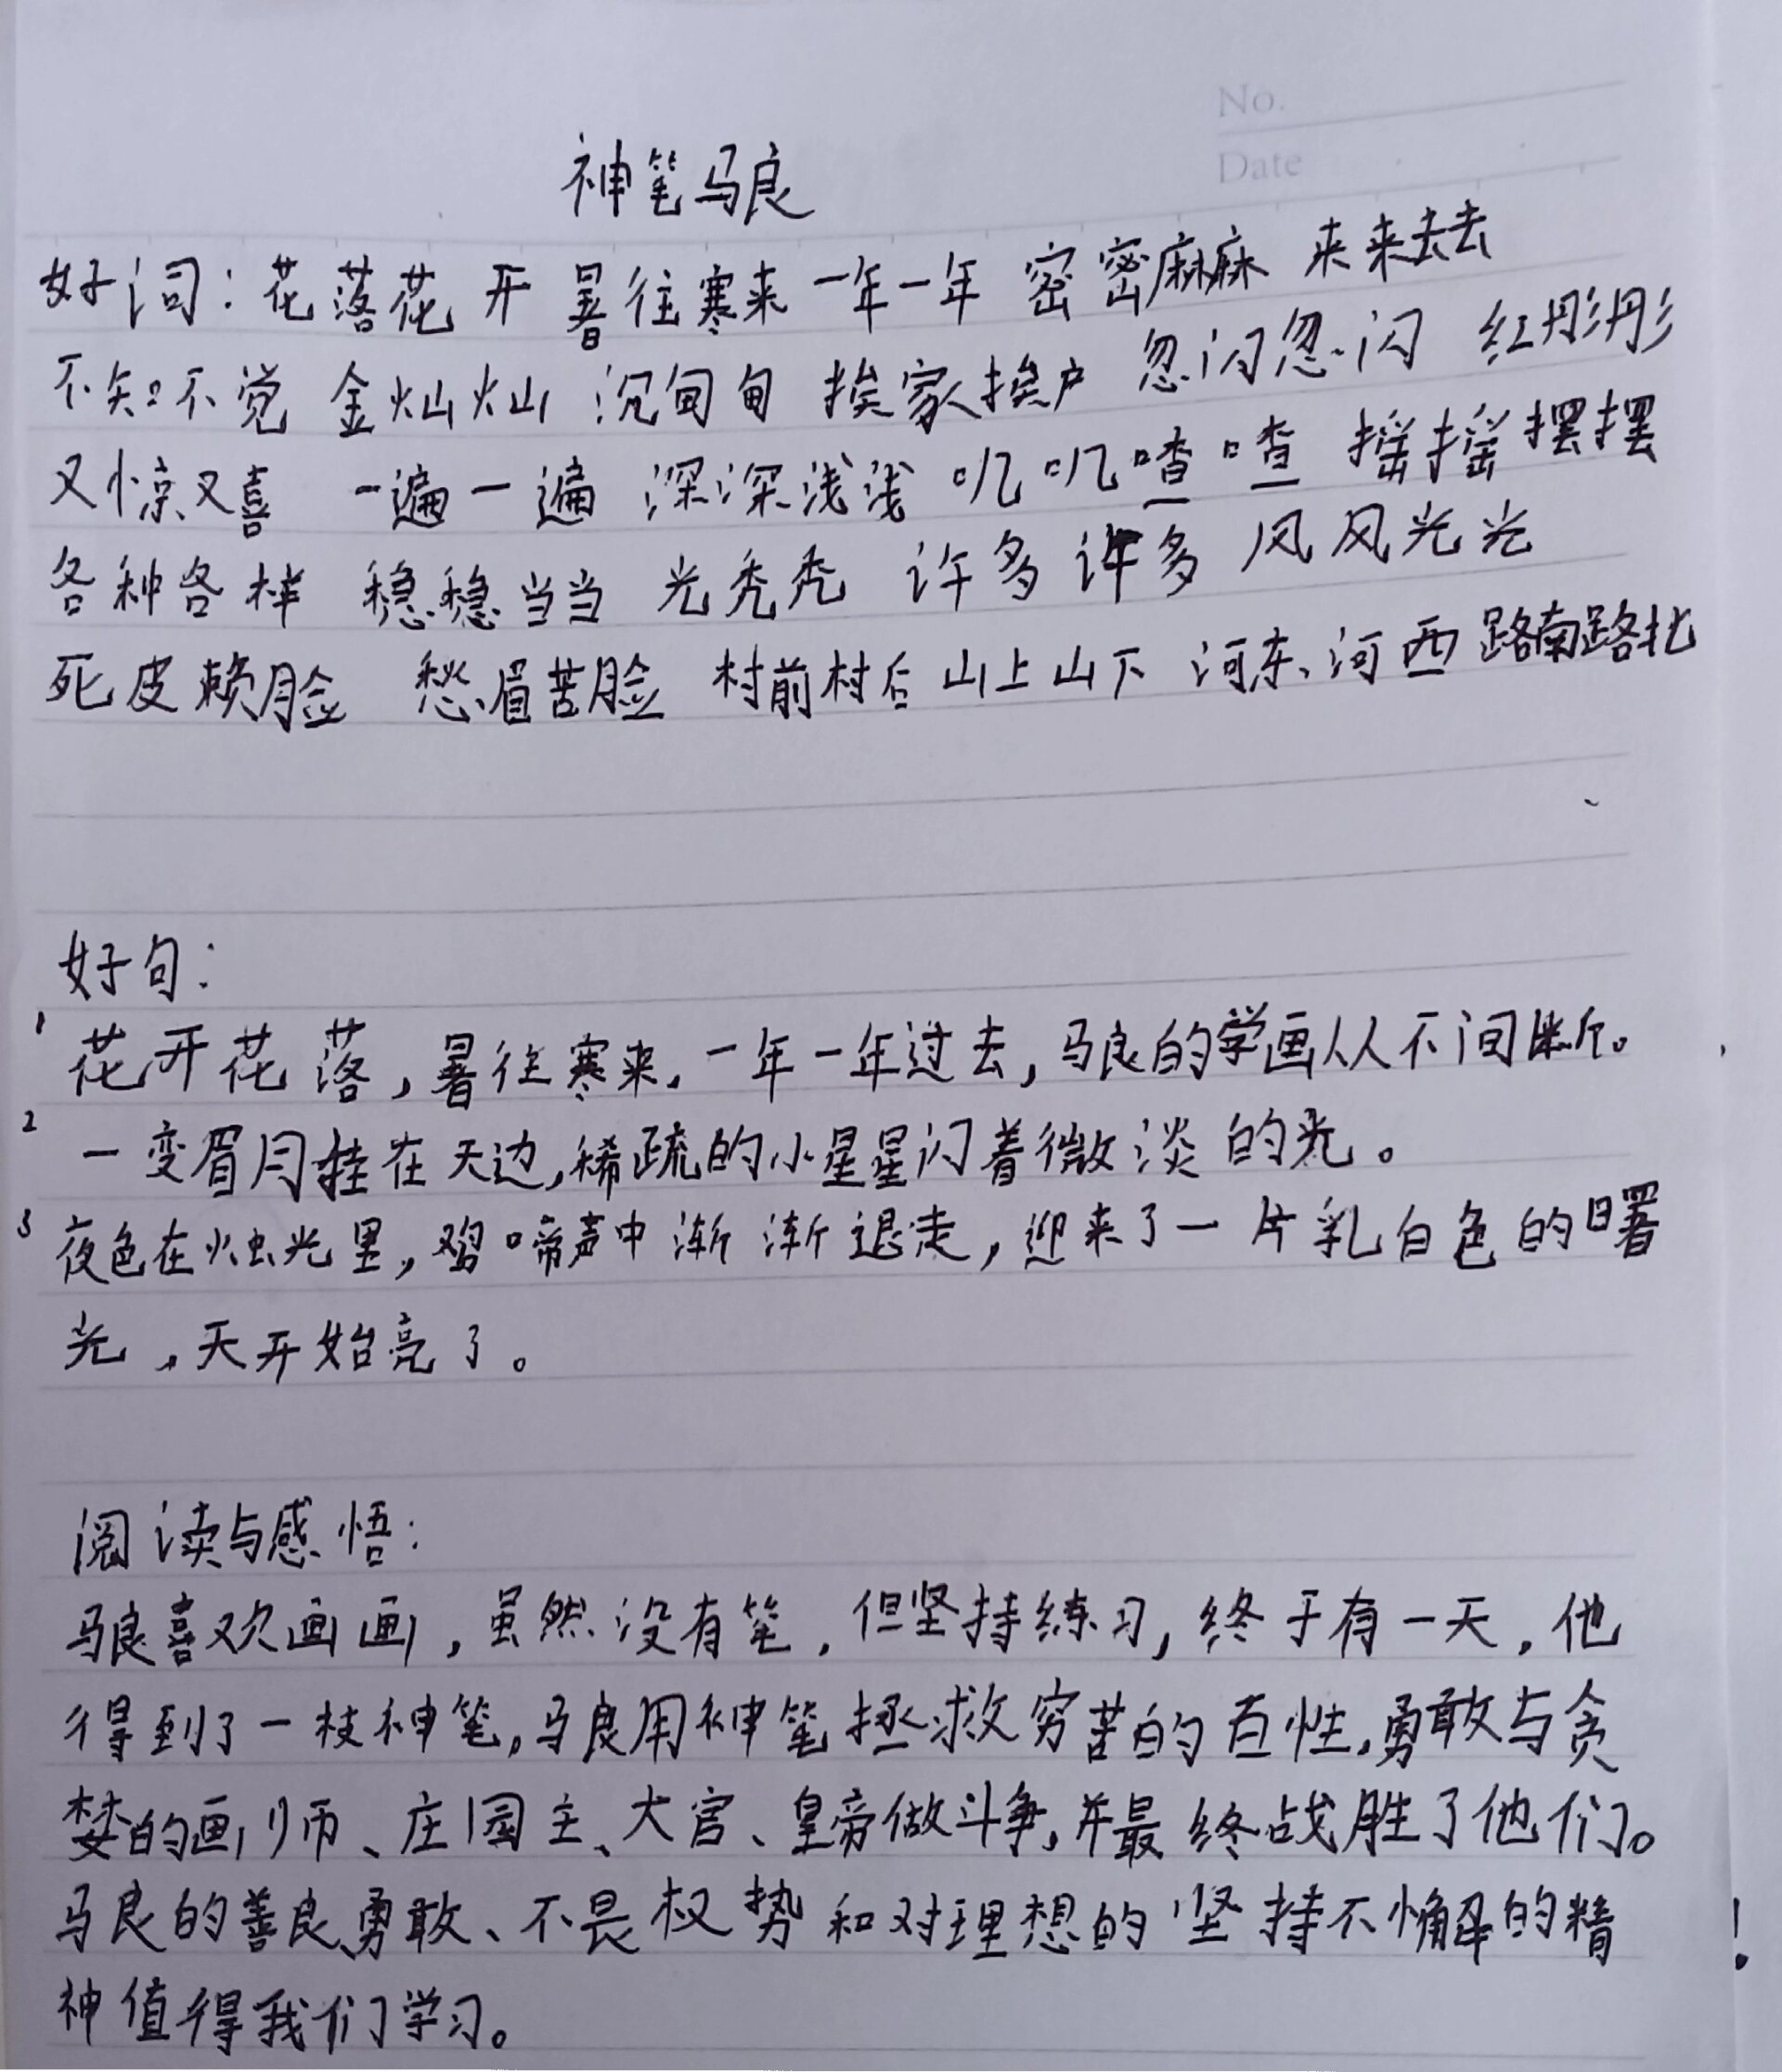 No.
Date
神笔马良
好词：花落花开 暑往寒来 一年一年 密密麻麻 来来去去
不知不觉 金灿灿 沉甸甸 挨家挨户 忽闪忽闪 红彤彤
又惊又喜 一遍一遍 深深浅浅 叽叽喳喳 摇摇摆摆
各种各样 稳稳当当 光秃秃 许多许多 风风光光
死皮赖脸 愁眉苦脸 村前村后 山上山下 河东、河西 路南路北
好句：
1 花开花落，暑往寒来，一年一年过去，马良的学画从不间断。
2 一变眉月挂在天边，稀疏的小星星闪着微淡的光。
3 夜色在烛光里，鸡啼声中渐渐退走，迎来了一片乳白色的曙
光，天开始亮了。
阅读与感悟：
马良喜欢画画，虽然没有笔，但坚持练习，终于有一天，他
得到了一枝神笔，马良用神笔拯救穷苦的百性，勇敢与贪
婪的画师、庄园主、大官、皇帝做斗争，并最终战胜了他们。
马良的善良、勇敢、不畏权势和对理想的坚持不懈的精
神值得我们学习。